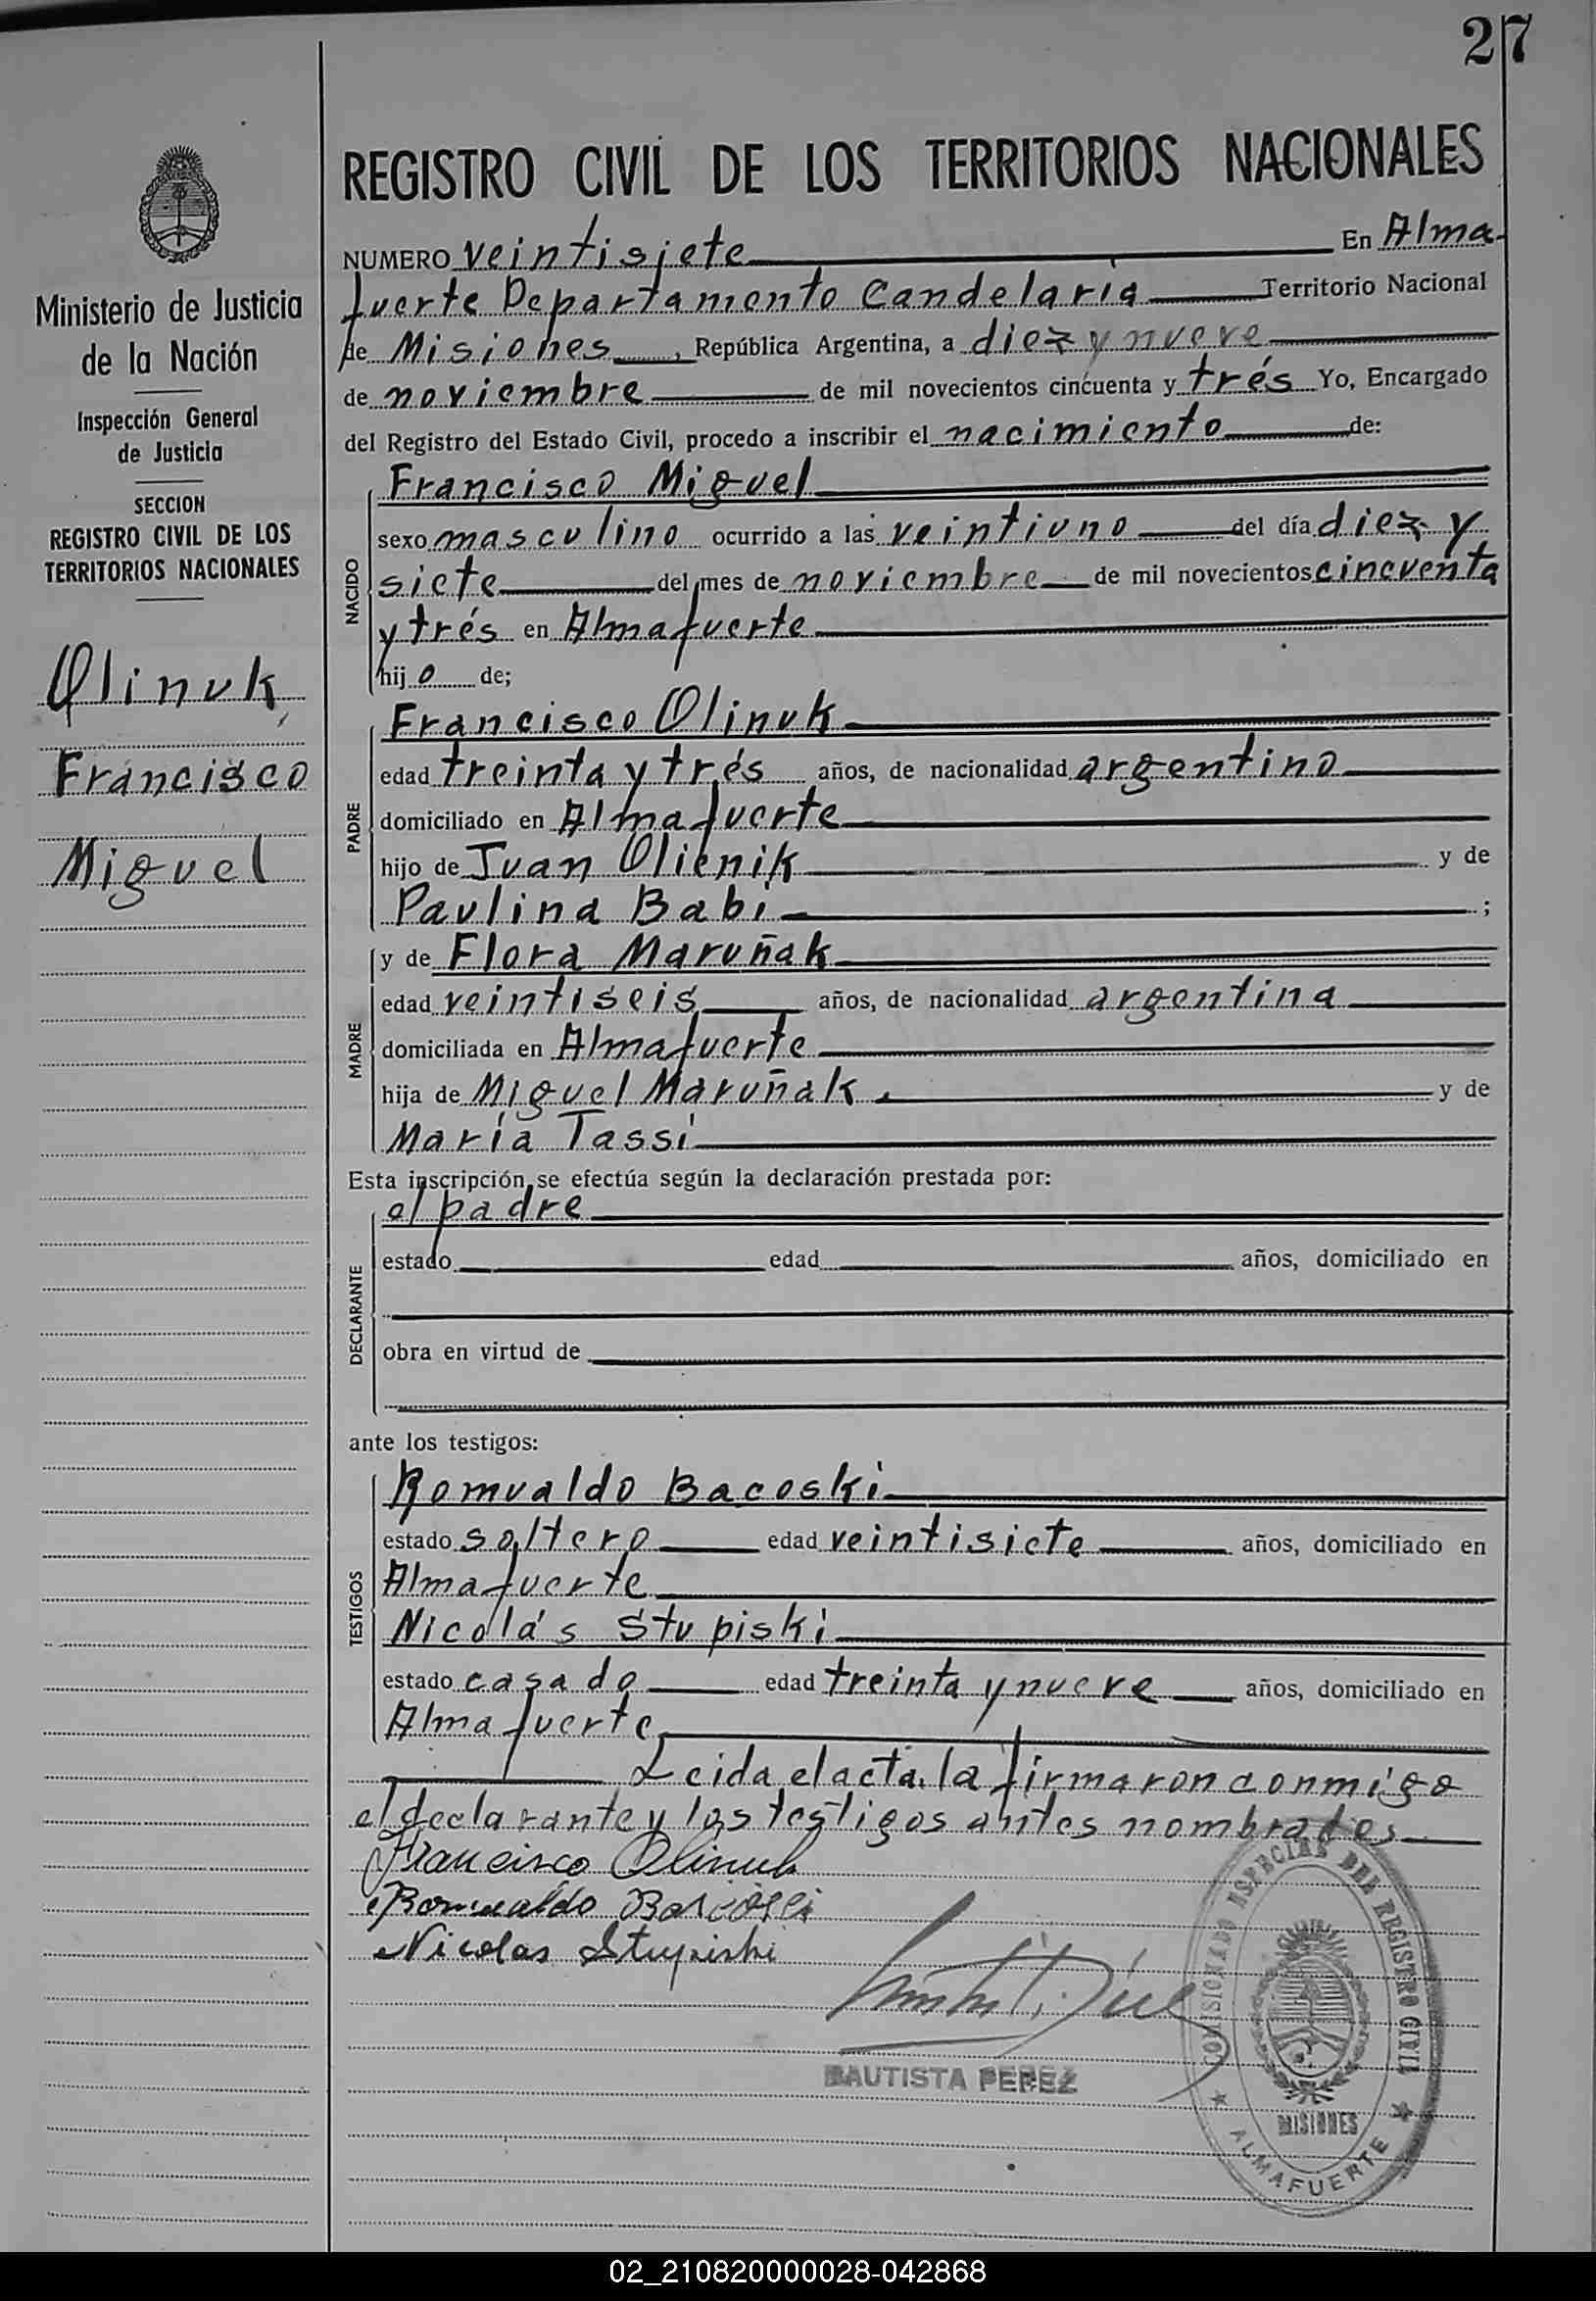 27
REGISTRO CIVIL DE LOS TERRITORIOS NACIONALES
Ministerio de Justicia
de la Nación
Inspección General
de Justicia
SECCION
REGISTRO CIVIL DE LOS
TERRITORIOS NACIONALES
Olinuk,
Francisco
Miguel
NUMERO veintisiete En Alma-
fuerte Departamento Candelaria Territorio Nacional
de Misiones, República Argentina, a diez y nueve
de noviembre de mil novecientos cincuenta y trés Yo, Encargado
del Registro del Estado Civil, procedo a inscribir el nacimiento de:
NACIDO
Francisco Miguel
sexo masculino ocurrido a las veintiuno del día diez y
siete del mes de noviembre de mil novecientos cincuenta
y trés en Almafuerte
hijo de;
PADRE
Francisco Olinuk
edad treinta y trés años, de nacionalidad argentino
domiciliado en Almafuerte
hijo de Juan Olienik y de
Paulina Babi ;
MADRE
y de Flora Maruñak
edad veintiseis años, de nacionalidad argentina
domiciliada en Almafuerte
hija de Miguel Maruñak y de
María Tassi
Esta inscripción se efectúa según la declaración prestada por:
DECLARANTE
el padre
estado edad años, domiciliado en
obra en virtud de
ante los testigos:
TESTIGOS
Romualdo Bacoski
estado soltero edad veintisiete años, domiciliado en
Almafuerte
Nicolás Stupiski
estado casado edad treinta y nueve años, domiciliado en
Almafuerte
Leida el acta, la firmaron conmigo
el declarante y los testigos antes nombrados
Francisco Olinuk
Romualdo
Nicolas Stupiski
BAUTISTA PEREZ
COMISIONADO ESPECIAL DEL REGISTRO CIVIL
MISIONES
ALMAFUERTE
02_210820000028-042868